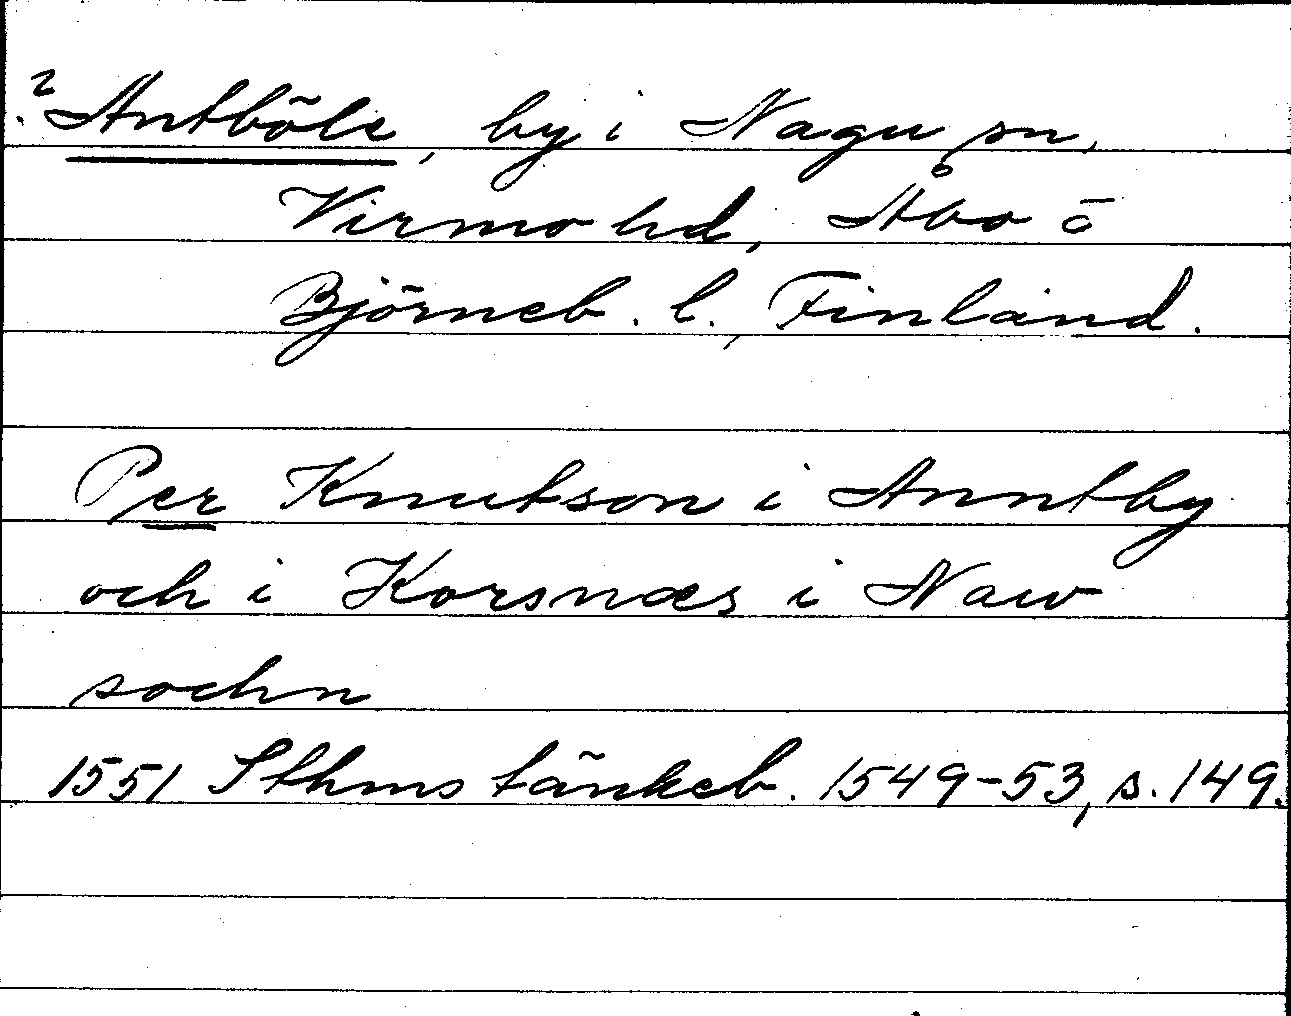 ? Antböle, by i Nagu sn,
Virmo hd, Åbo o
Björneb. l., Finland.
Per Knutson i Anntby
och i Korsnæs i Naw
sochn
1551 Sthms tänkeb. 1549-53, s. 149.